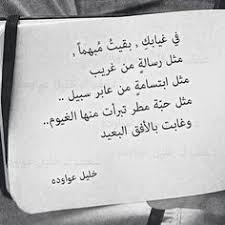 في غيابكِ , بقيتُ مُبهماً ,
مثل رسالةٍ من غريب
مثل ابتسامةٍ من عابر سبيل ..
مثل حبّة مطر تبرأت منها الغيوم..
وغابت بالأفق البعيد
خليل عواوده